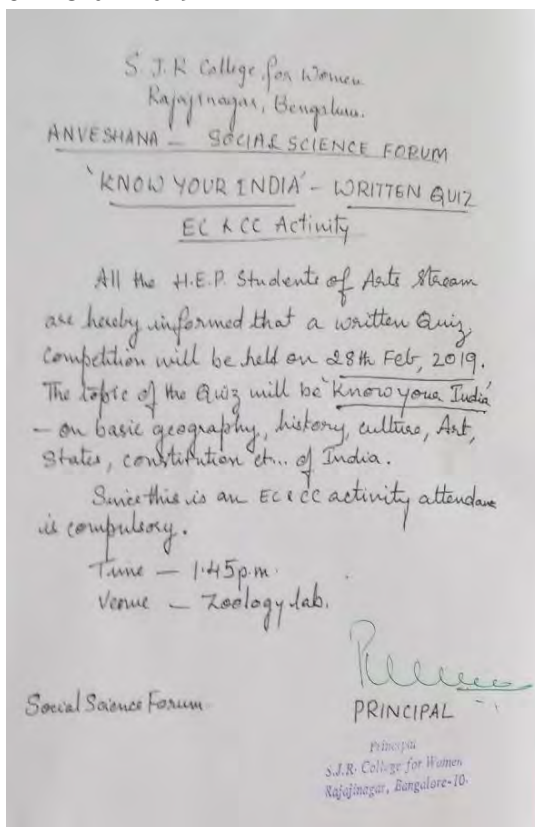 S. J. R College for Women
Rajajinagar, Bengaluru.
ANVESHANA – SOCIAL SCIENCE FORUM
'KNOW YOUR INDIA' – WRITTEN QUIZ
EC & CC Activity
All the H.E.P. Students of Arts Stream
are hereby informed that a written Quiz
Competition will be held on 28th Feb, 2019.
The topic of the Quiz will be 'Know your India'
– on basic geography, history, culture, Art,
States, constitution et... of India.
Since this is an EC & CC activity attendance
is compulsory.
Time – 1.45p.m.
Venue – Zoology lab.
Social Science Forum
PRINCIPAL
Principal
S.J.R. College for Women
Rajajinagar, Bangalore-10.